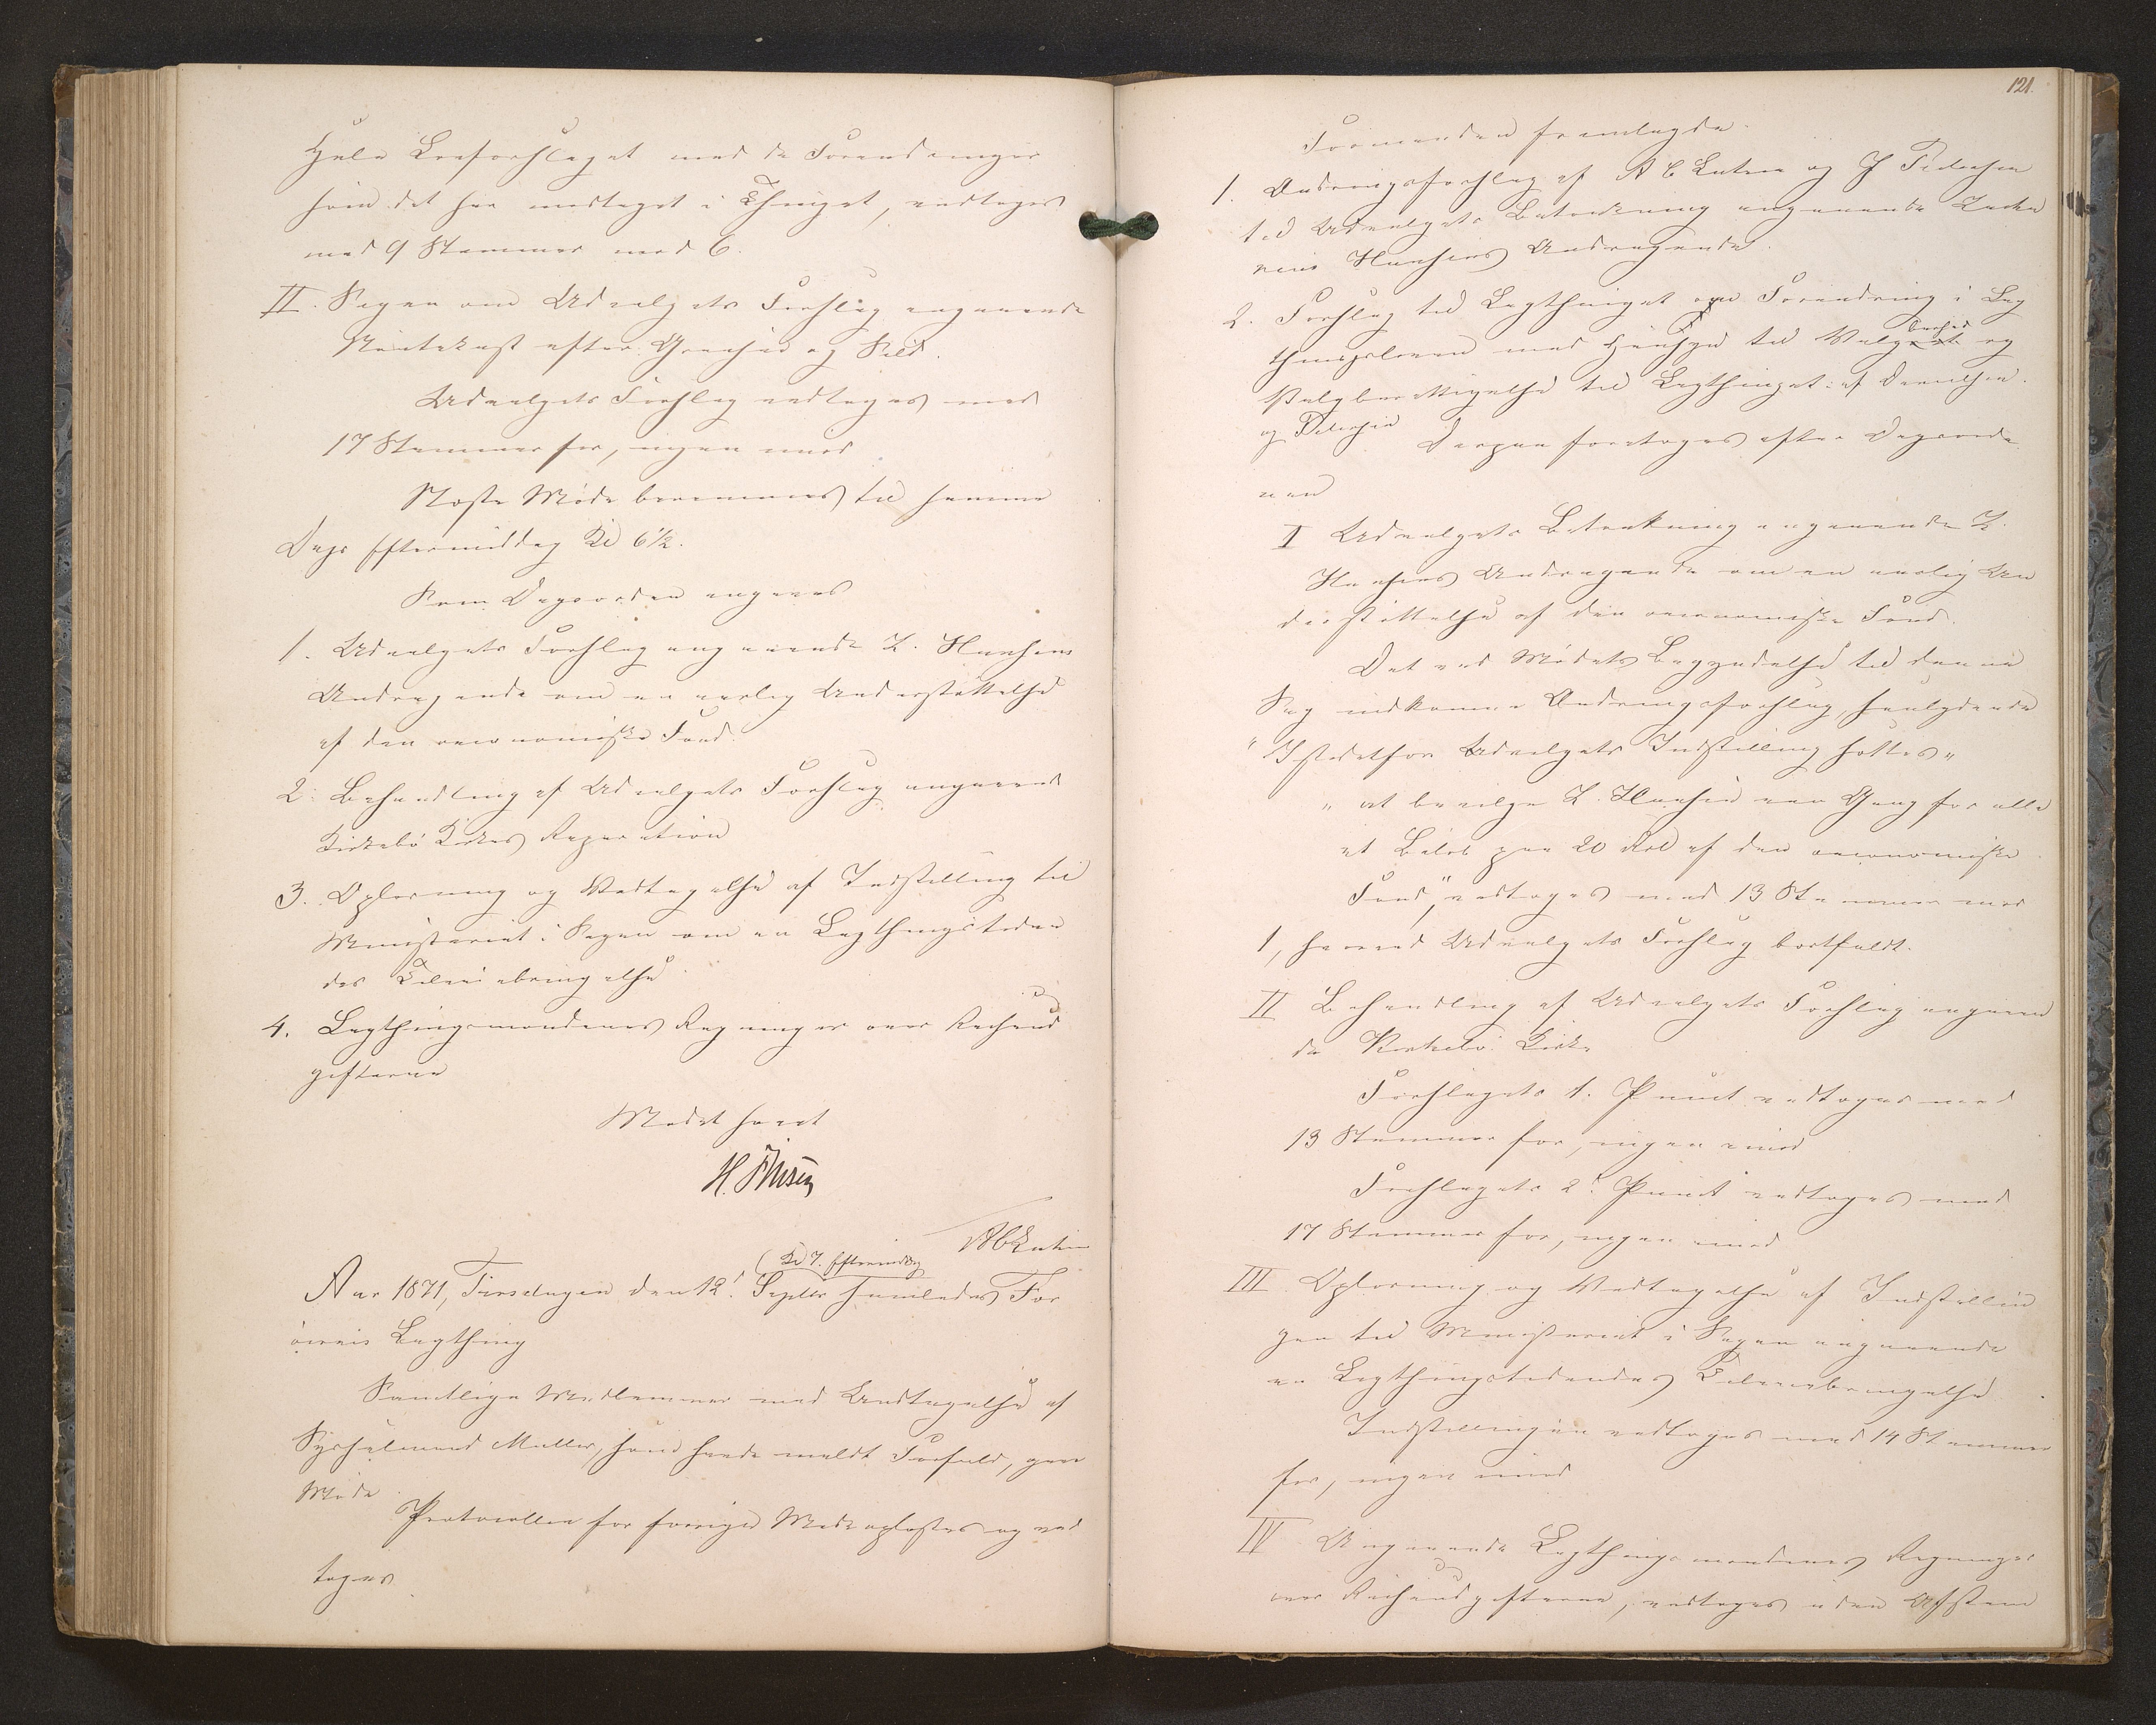 Hele Lovforslaget med de Forandringer
som det har modtaget i Thinget, vedtoges
med 9 Stemmer mod 6.
II. Sagen om Udvalgets Forslag angaaende
Nootekast efter Graasei og Sild.
Udvalgets Forslag vedtoges med
17 Stemmer for, ingen imod
Næste Møde berammes til samme
Dags Eftermiddag Kl 6½.
Som Dagsorden angaves
1. Udvalgets Forslag angaaende Z. Hansens
Andragende om en aarlig Understøttelse
af den oeconomiske Fond.
2. Behandling af Udvalgets Forslag angaaende
Kirkebø Kirkes Reparation
3. Oplæsning og Vedtagelse af Indstilling til
Ministeriet i Sagen om en Lagthingstiden
des Tilveiebringelse
4. Lagthingsmændenes Regninger over Reiseud
gifterne
Mødet hævet
H. Finsen
(Kl 7. Eftermiddag
Aar 1871, Tirsdagen den 12. Septbr samledes Fær
øernes Lagthing
Samtlige Medlemmer med Undtagelse af
Sysselmand Müller, som havde meldt Forfald, gav
Møde
Protocollen for forrige Møde oplæstes og ved
toges
121.
Formanden fremlagde
1. Ændringsforslag af og J Petersen
til Udvalgets Betænkning angaaende Zacha
rias Hansens Andragende.
2. Forslag til Lagthinget om Forandring i Lag
thingsloven med Hensyn til Valgbarhed og
Valgberettigelse til Lagthinget af
og Petersen
Derpaa foretoges efter Dagsorde
nen
I Udvalgets Betænkning angaaende Z.
Hansens Andragende om en aarlig Un
derstøttelse af den oeconomiske Fond.
Det ved Mødets Begyndelse til denne
Sag indkomne Ændringsforslag, saalydende
"Istedetfor Udvalgets Indstilling sættes"
" at bevilge Z. Hansen een Gang for alle
et Beløb paa 20 Rd af den oeconomiske
Fond", vedtoges med 13 Stemmer mod
1, hvorved Udvalgets Forslag bortfaldt.
II Behandling af Udvalgets Forslag angaaen
de Kirkebø Kirke
Forslagets 1. Punct vedtoges med
13 Stemmer for, ingen imod
Forslagets 2. Punct vedtoges med
17 Stemmer for, ingen imod
III. Oplæsning og Vedtagelse af Indstillin
gen til Ministeriet i Sagen angaaende
en Lagthingstidendes Tilveiebringelse
Indstillingen vedtoges med 14 Stemmer
for, ingen imod
IV Angaaende Lagthingsmændenes Regninger
over Reiseudgifterne, vedtoges uden Afstem